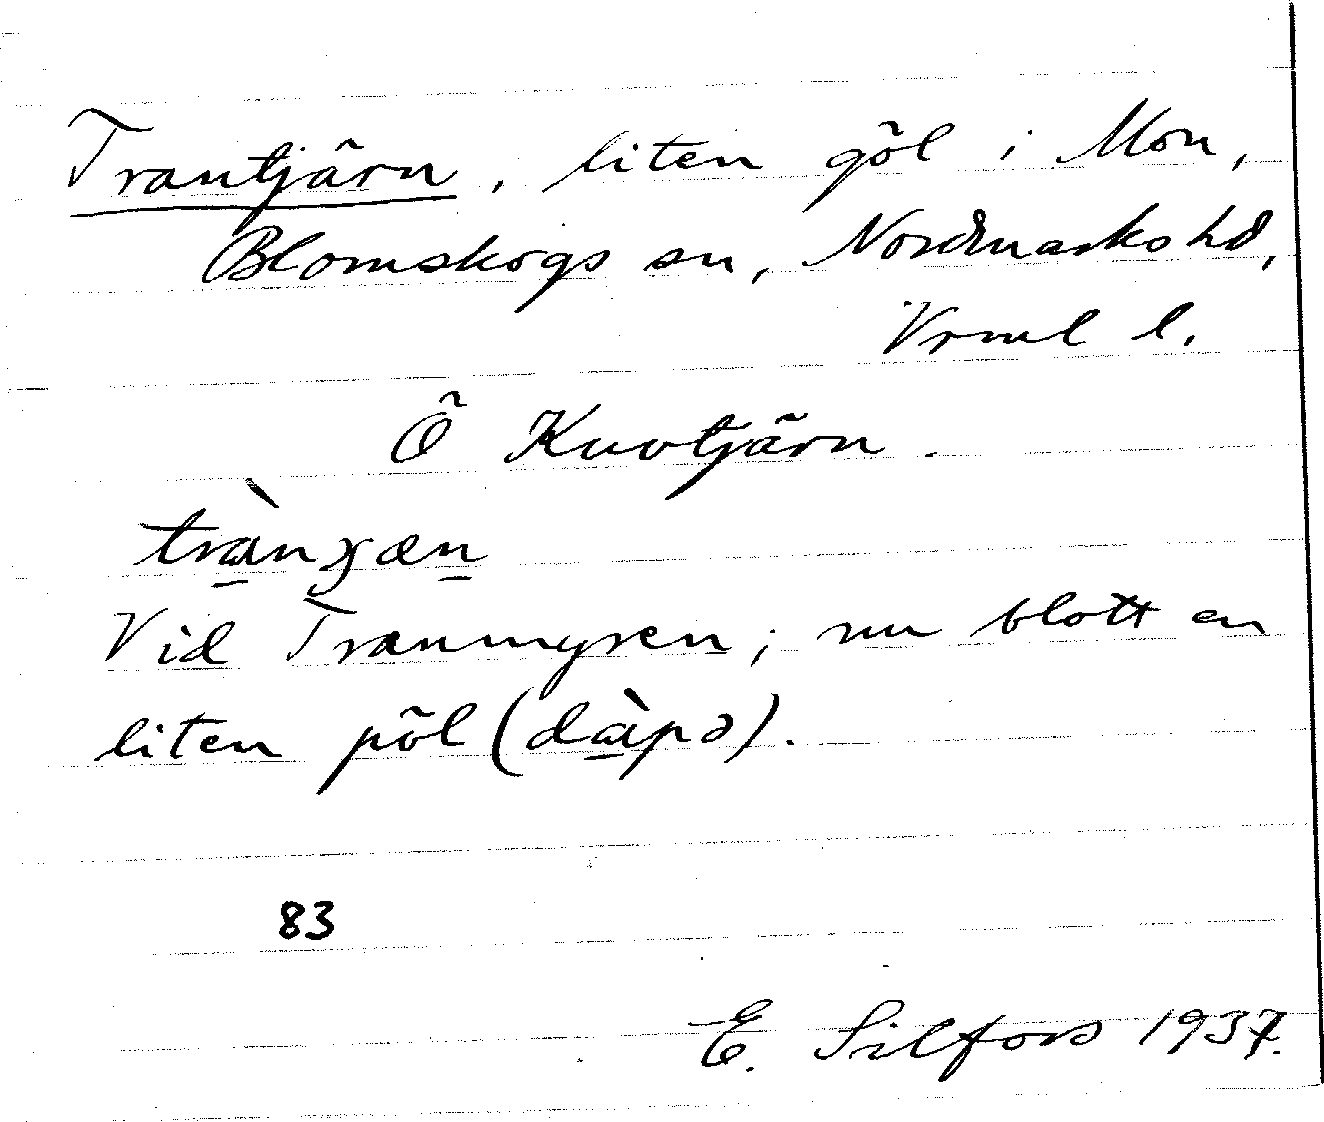 Trantjärn, liten göl i Mon,
Blomskogs sn, Nordmarks hd,
Vrml l.
Ö Kuvtjärn.
trànʒæn
Vid Tranmyren; nu blott en
liten pöl (dàpə).
83
E. Silfors 1937.